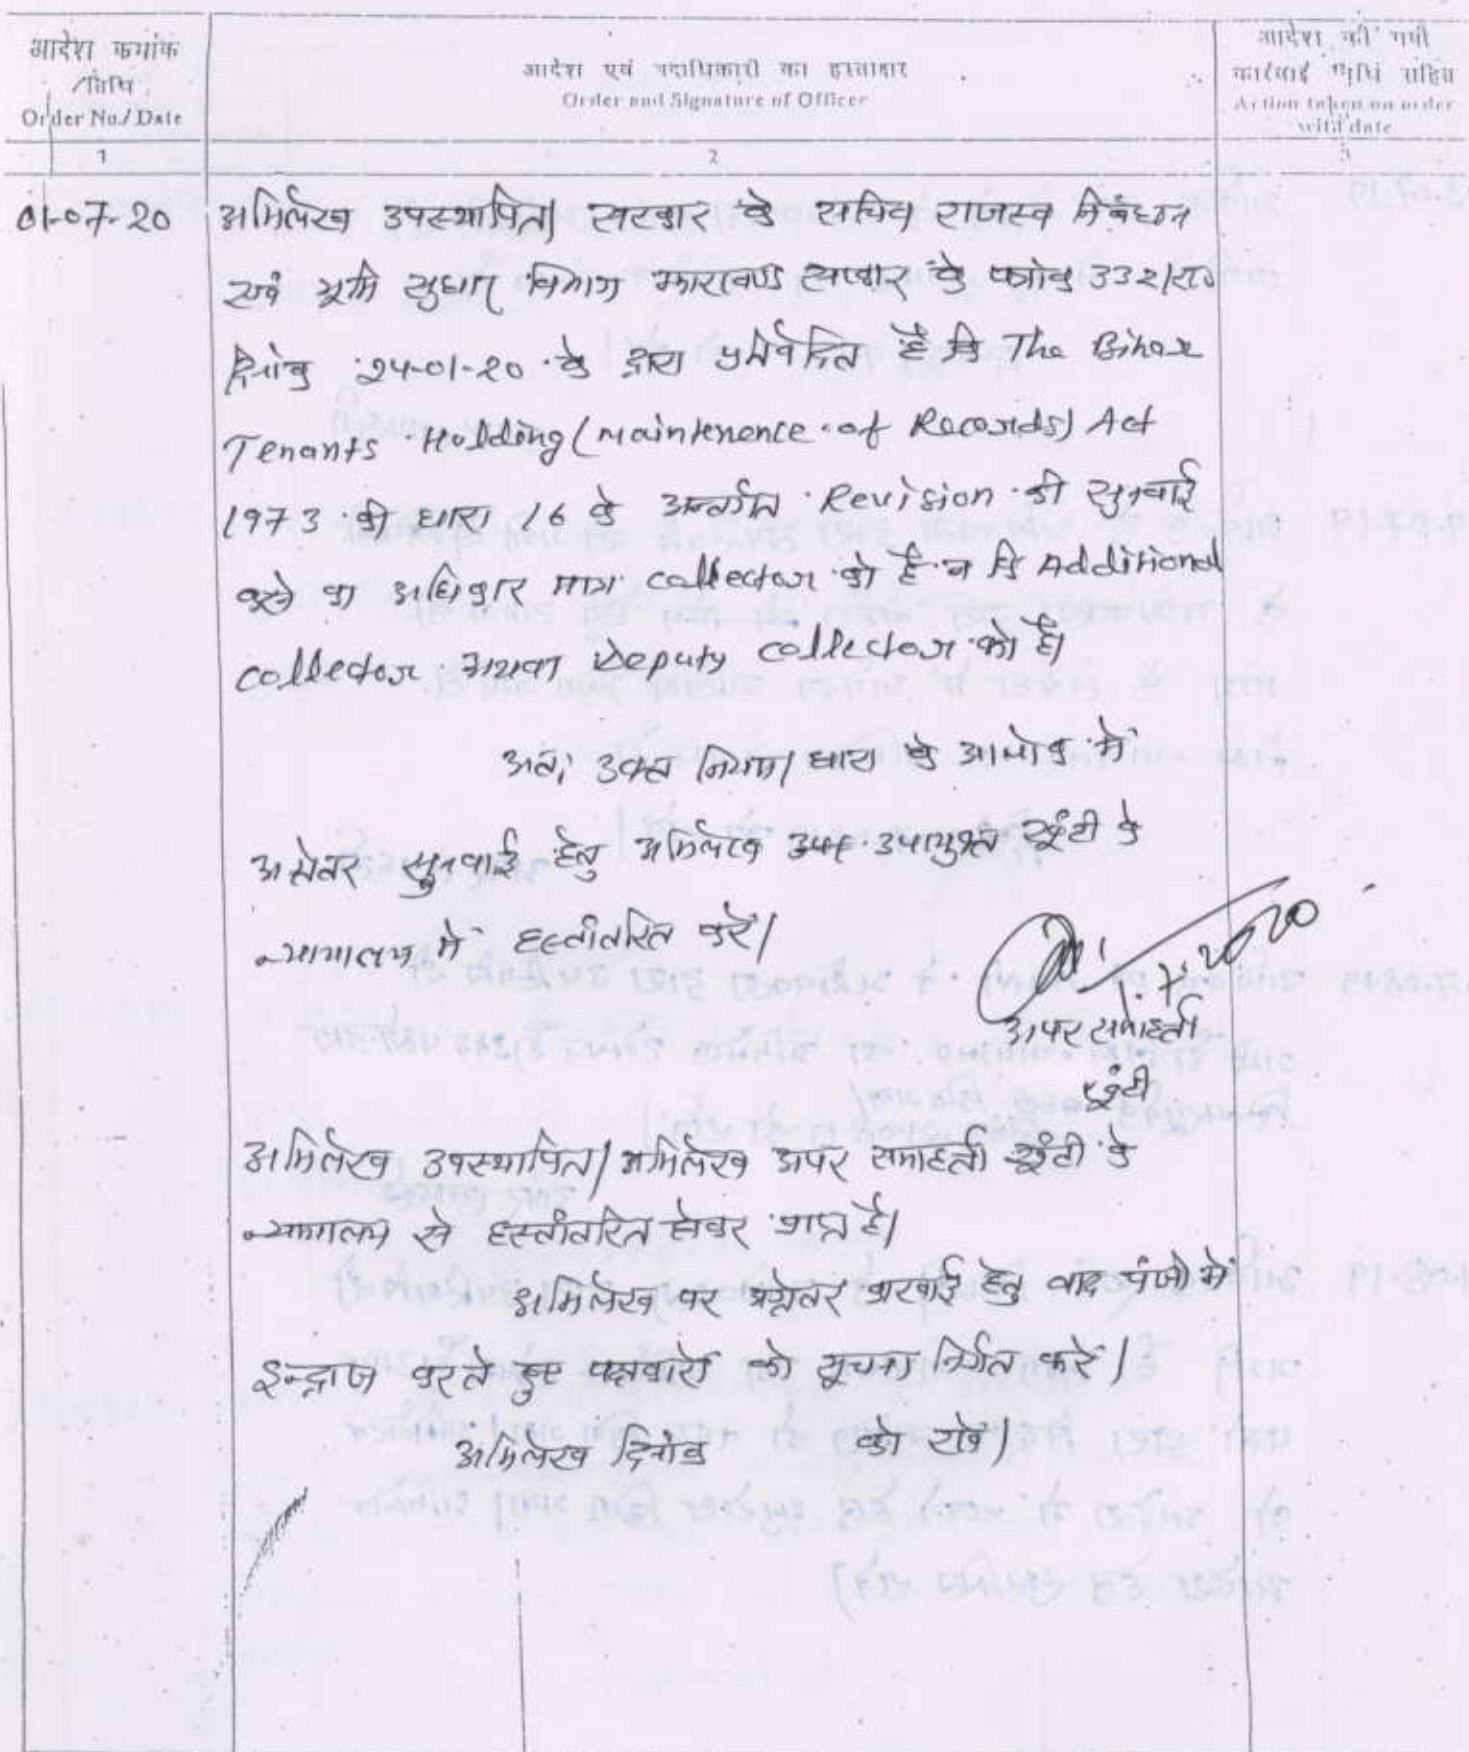 आदेश क्रमांक
/तिथि
Order No./ Date
आदेश एवं पदाधिकारी का हस्ताक्षर
Order and Signature of Officer
आदेश की गयी
कार्रवाई तिथि सहित
Action taken on order
with date
1
2
3
01-07-20
अभिलेख उपस्थापित। सरकार के सचिव राजस्व निबंधन
एवं भूमि सुधार विभाग झारखण्ड सरकार के पत्रांक 332/रा०
दिनांक 24-01-20 के द्वारा प्रतिवेदित है कि The Bihar
Tenants Holding (maintenence of Records) Act
1973 की धारा 16 के अन्तर्गत Revision की सुनवाई
करने का अधिकार मात्र collector को है न कि Additional
collector अथवा Deputy collector को है।
अतः उक्त नियम/ धारा के आलोक में
अग्रेतर सुनवाई हेतु अभिलेख उपायुक्त खूँटी के
न्यायालय में हस्तांतरित करें।
1.7.2020
अपर समाहर्ता
खूँटी
अभिलेख उपस्थापित/ अभिलेख अपर समाहर्ता खूँटी के
न्यायालय से हस्तांतरित होकर प्राप्त है।
अभिलेख पर अग्रेतर कारवाई हेतु वाद पंजी में
इन्द्राज करते हुए पक्षकारों को सूचना निर्गत करें।
अभिलेख दिनांक को रखें।